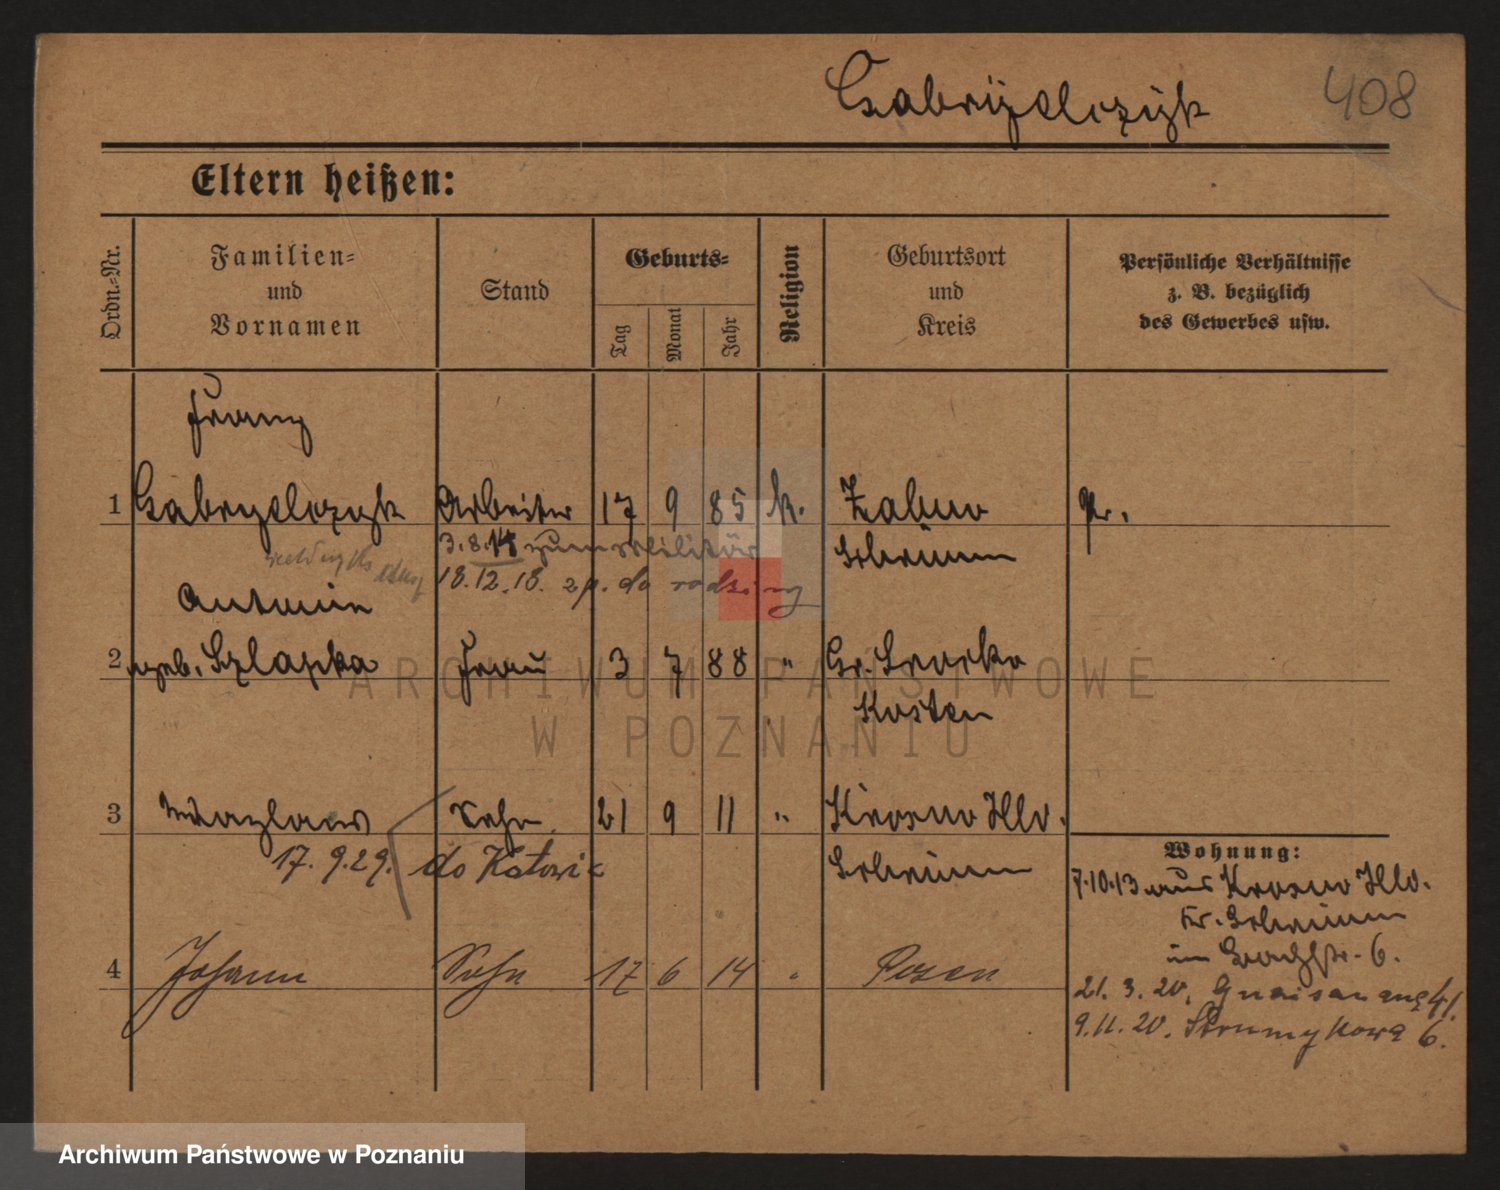 Gabryelczyk 408
Eltern heißen:
Ordn.=Nr.
Familien=
und
Vornamen
Stand
Geburts=
Tag
Monat
Jahr
Religion
Geburtsort
und
Kreis
Persönliche Verhältnisse
z. B. bezüglich
des Gewerbes usw.
Franz
1 Gabryelczyk Arbeiter 17 9 85 k. Zabno Pr.
3.8.14 zum Militär Schrimm
18.12.18. zp. do rodziny
Antonie
2 geb. Szlapka Frau 3 7 88 " Gr. Srocko
Kosten
3 Wazlaus Sohn 21 9 11 " Krosno Hld.
17. 9.29. do Katowic Schrimm
4 Johann Sohn 17 6 14 " Posen
Wohnung:
7.10.13 aus Krosno Hld.
Kr. Schrimm
im Bachstr. 6.
21. 3. 20. 41.
9.11.20. Strumykowa 6.
ARCHIWUM PAŃSTWOWE
W POZNANIU
Archiwum Państwowe w Poznaniu